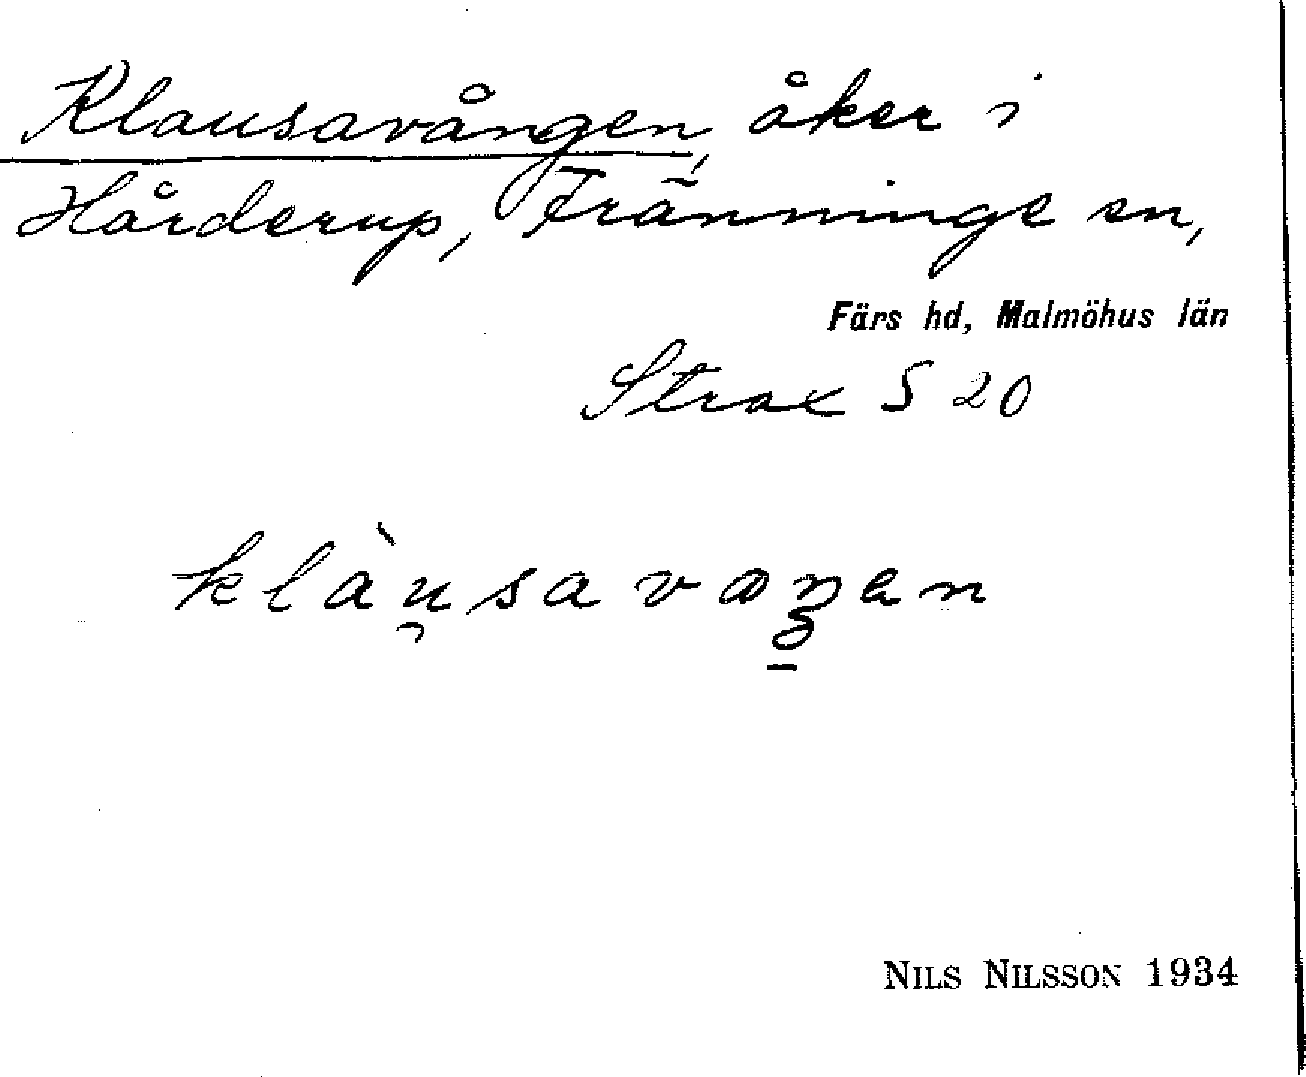 Klausavången, åker i
Hårderup, Fränninge sn,
Färs hd, Malmöhus län
Strax S 20
klàu̯savaŋ̱en
NILS NILSSON 1934